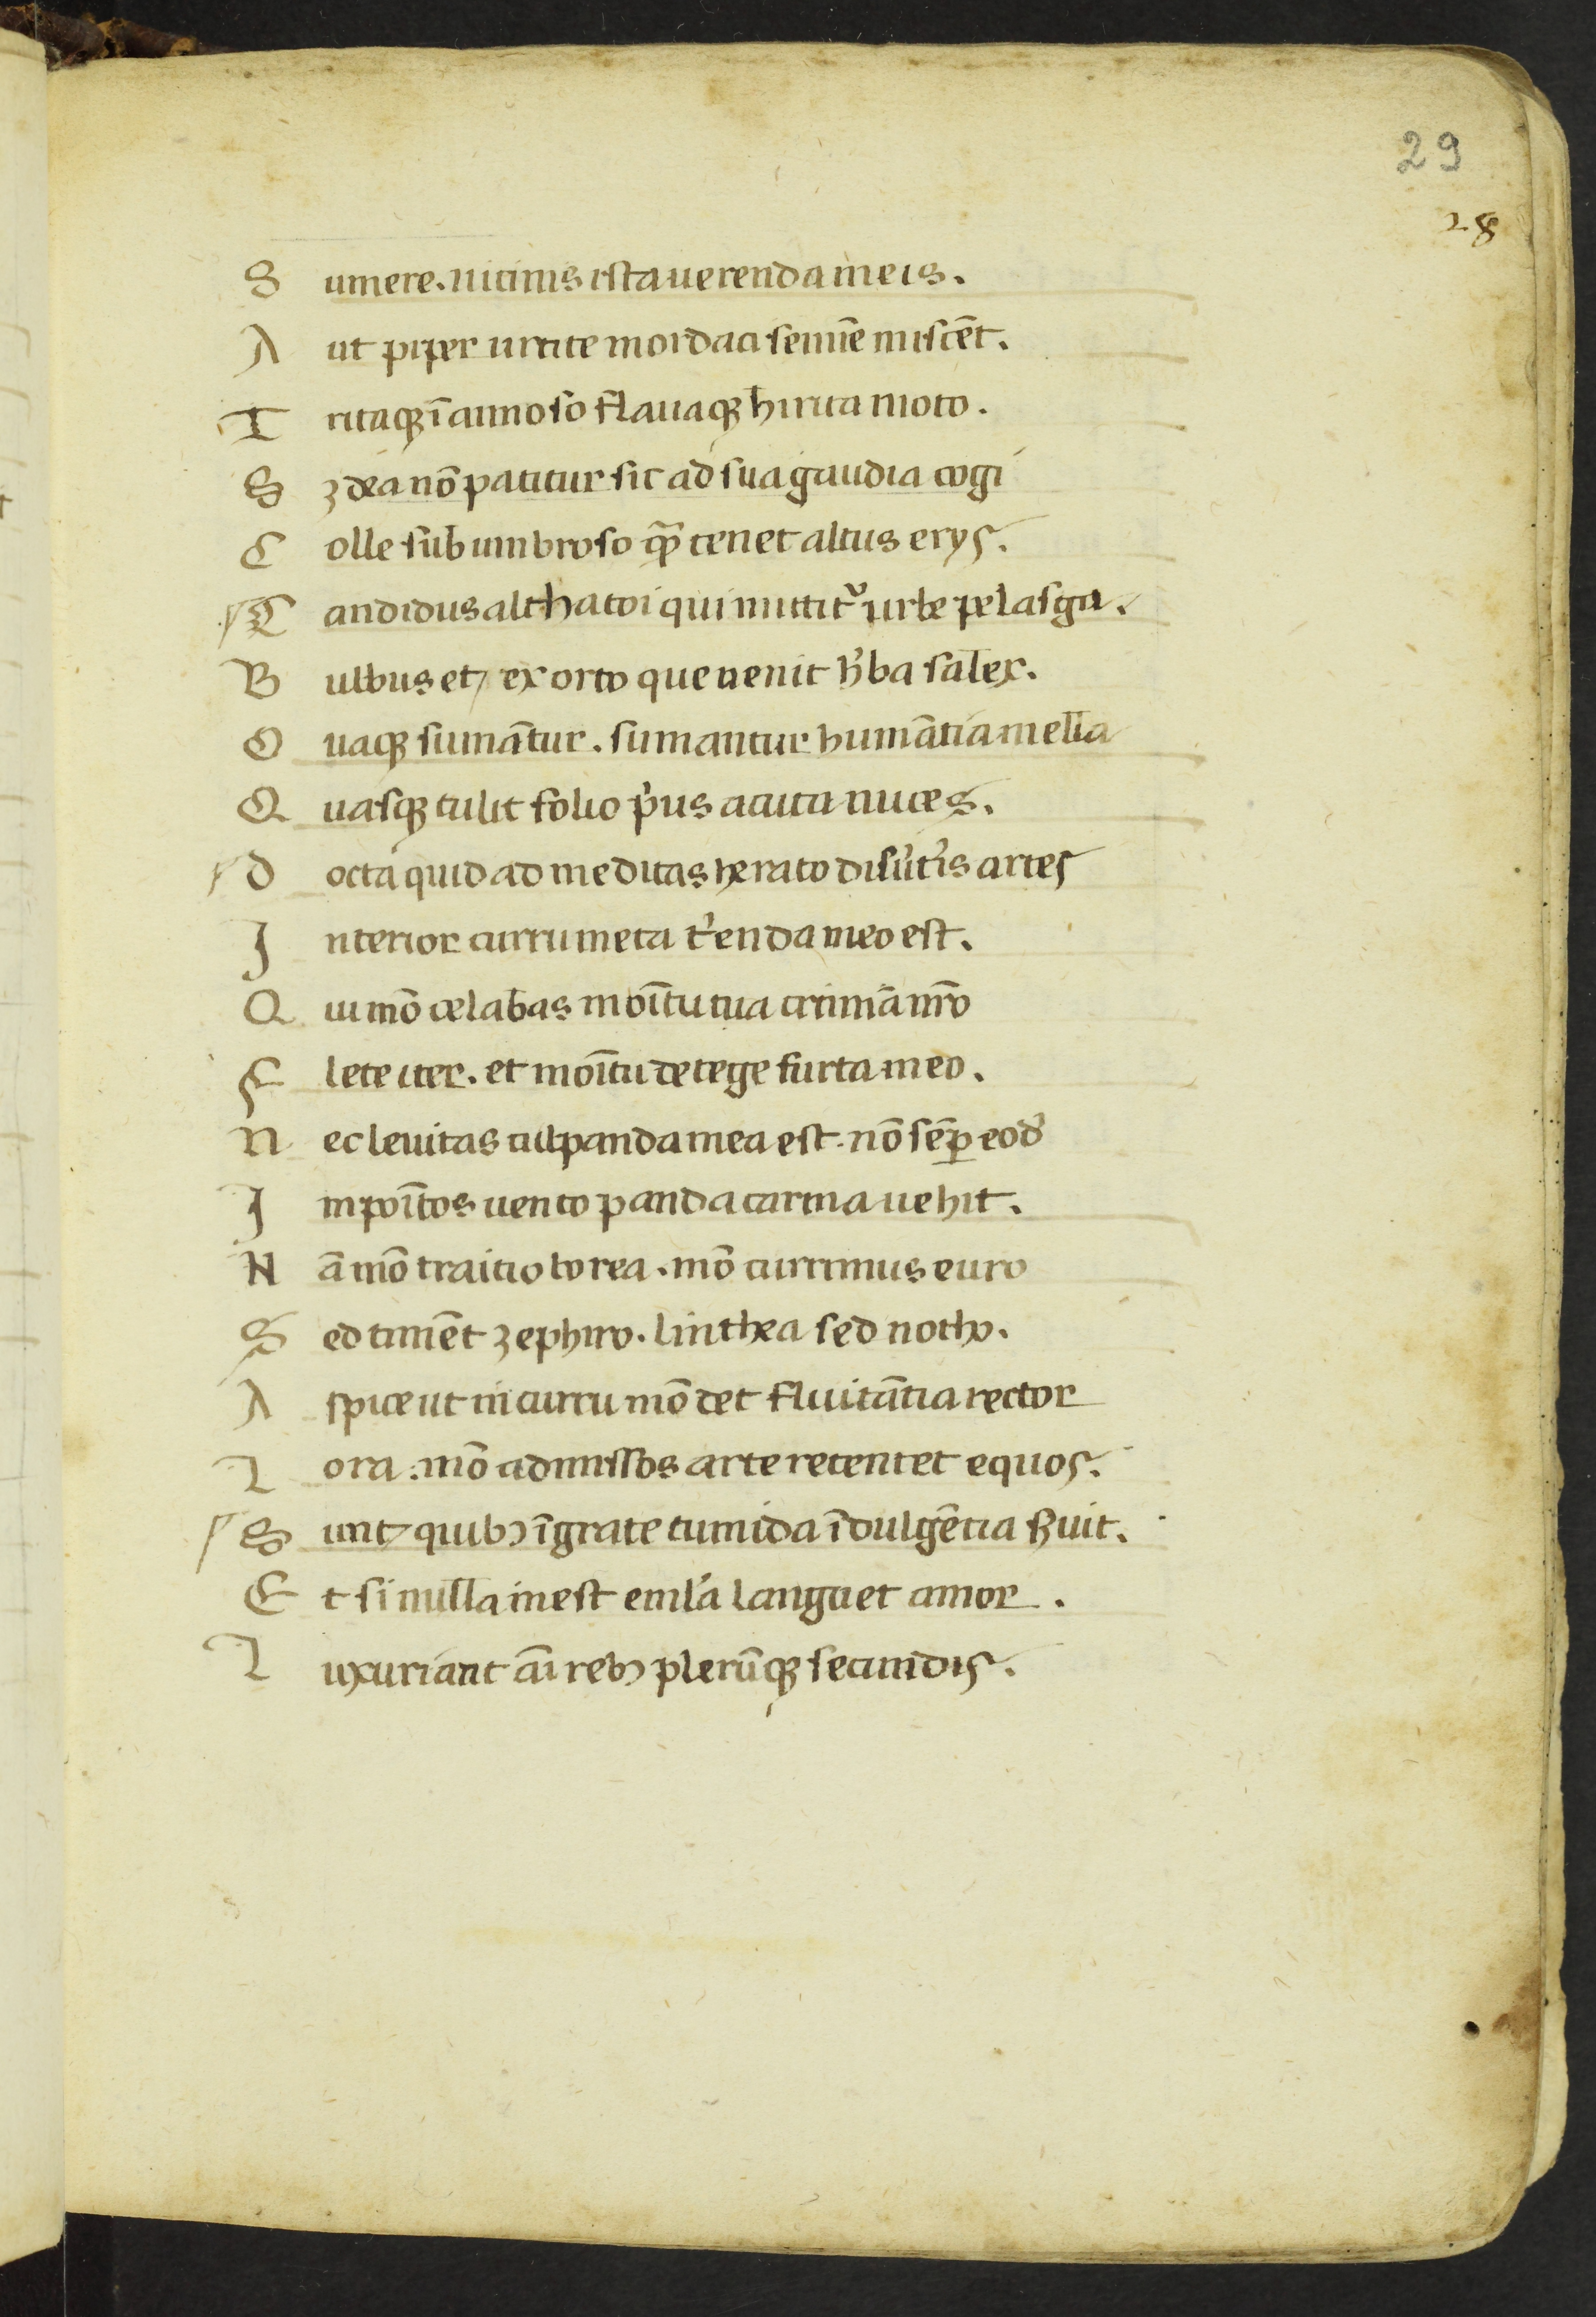 29
28
S umere. nicinis ista uerenda meis.
A ut piper urtite mordaci semīe miscēt.
T ritaqꝫ ī annoso flauaqꝫ hirica moto.
S ꝫ dea nō patitur sic ad sua gaudia cogi
C olle sub umbroso quā tenet altus eryς.
C andidus alchatoi qui mittit᷑ urbe pelasga.
B ulbus et ex orto que uenit h̓ba salex.
O uaqꝫ sumāntur. sumantur humātia mella
Q uasqꝫ tulit folio p̓us acuta nuces.
D octa quid ad meditas herato disu̓tis artes
I nterior curru meta t̓enda meo est.
Q ui mō celabas moītu tua crimīa nr̄o
F lete iter. et moītu detege furta meo.
N ec leuitas culpanda mea est. nō sēꝑ eod̓
I mpoītos uento panda carina uehit.
N ā mō traitio borea. mō currimus euro
S ed timēt zephiro. linthea sed notho.
A spice ut in curru mō det fluitātia rector
L ora. mō admissos arte retentet equos.
S unt quibꝫ īgrate tumida īdulgētia s̓uit.
E t si nulla inest eml̓a languet amor.
L uxuriant aī rebꝫ plerūqꝫ secundis.